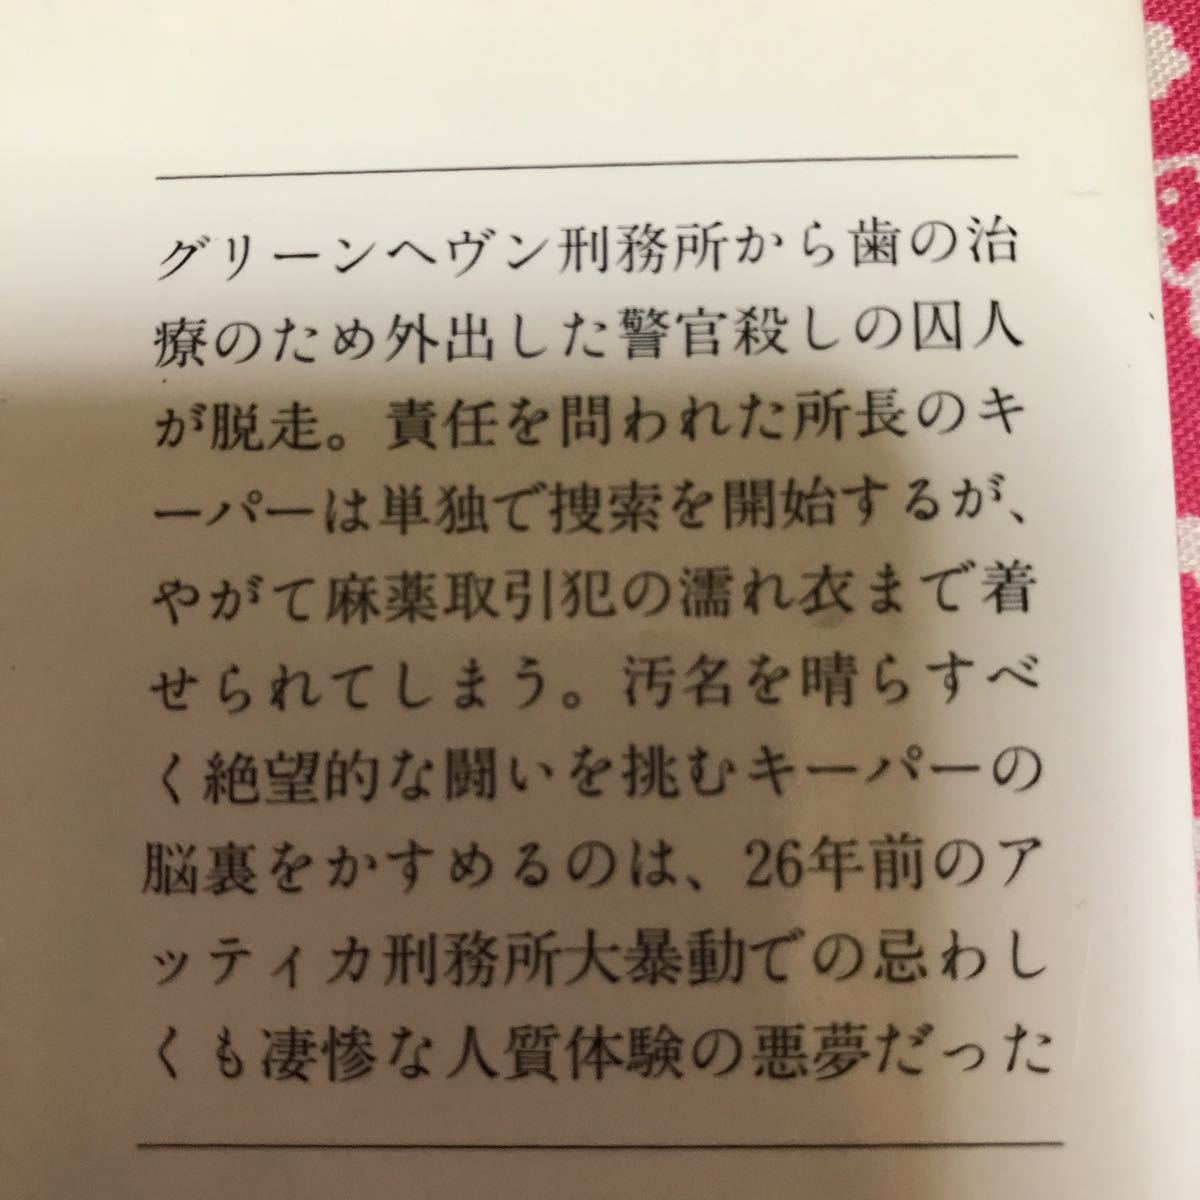 グリーンヘヴン刑務所から歯の治
療のため外出した警官殺しの囚人
が脱走。責任を問われた所長のキ
ーパーは単独で捜索を開始するが、
やがて麻薬取引犯の濡れ衣まで着
せられてしまう。汚名を晴らすべ
く絶望的な闘いを挑むキーパーの
脳裏をかすめるのは、26年前のア
ッティカ刑務所大暴動での忌わし
くも凄惨な人質体験の悪夢だった